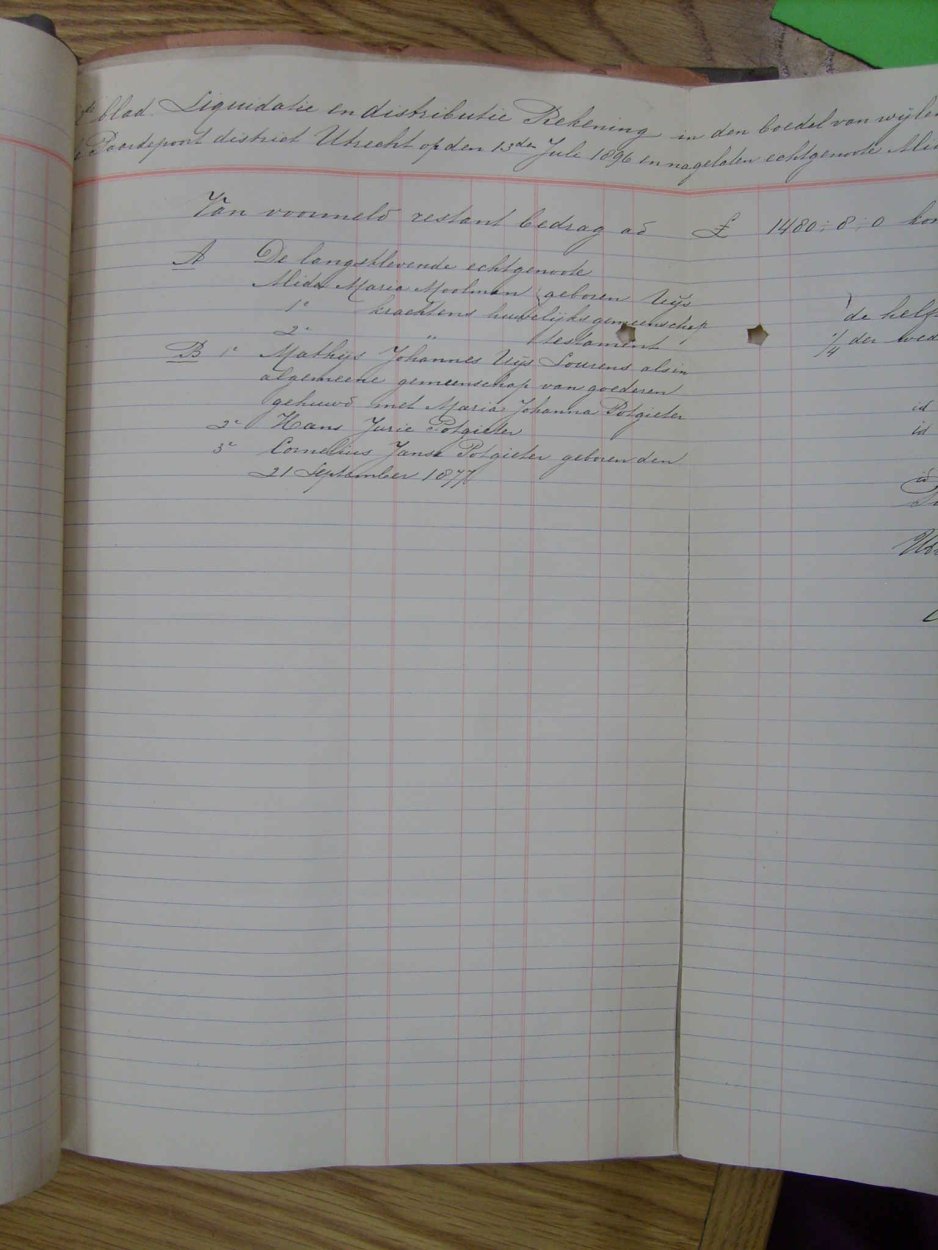 de blad. Liquidatie en distributie Rekening in den boedel van wijlen
Paardepoort district Utrecht op den 13den Juli 1896 en nagelaten echtgenoote
Van voormeld restant bedrag ad £ 1480:8:0
A De langstlevende echtgenoote
Alida Maria Moolman geboren Uijs
1e krachtens huwelijksgemeenschap de helf
2e " testament 1/4 der
B 1e Mathijs Johannes Uijs Lourens als in
algemeene gemeenschap van goederen
gehuwd met Maria Johanna Potgieter id
2e Hans Jurie Potgieter id
3e Cornelius Janse Potgieter geboren den
21 September 1877 id